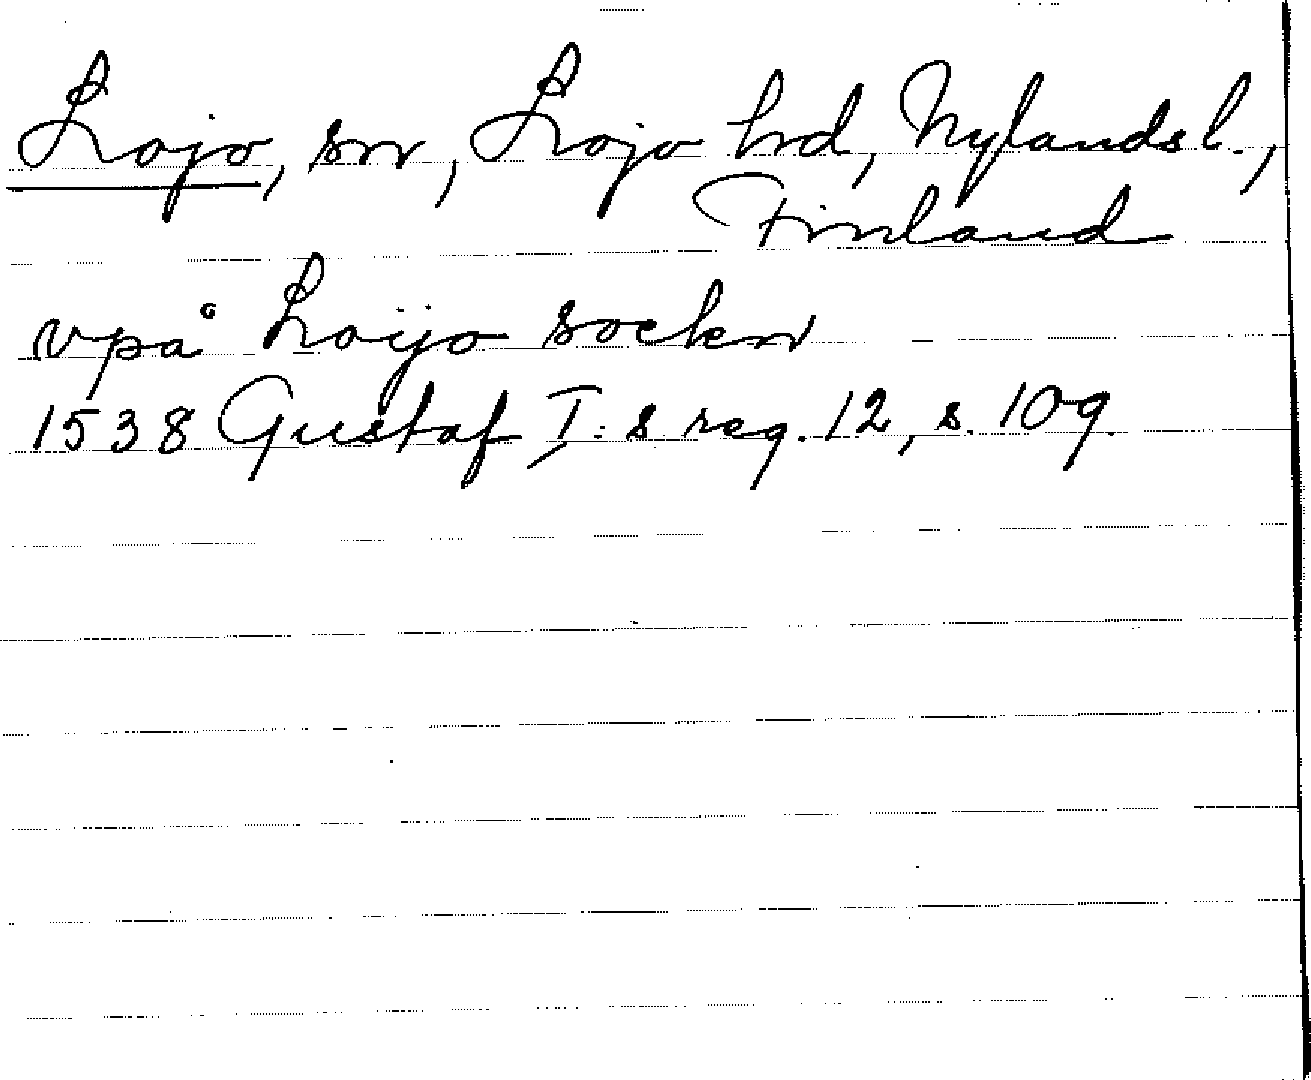 Lojo, sn, Lojo hd, Nylands l.,
Finland
vpå Loijo sockn
1538 Gustaf I:s reg. 12, s. 109.